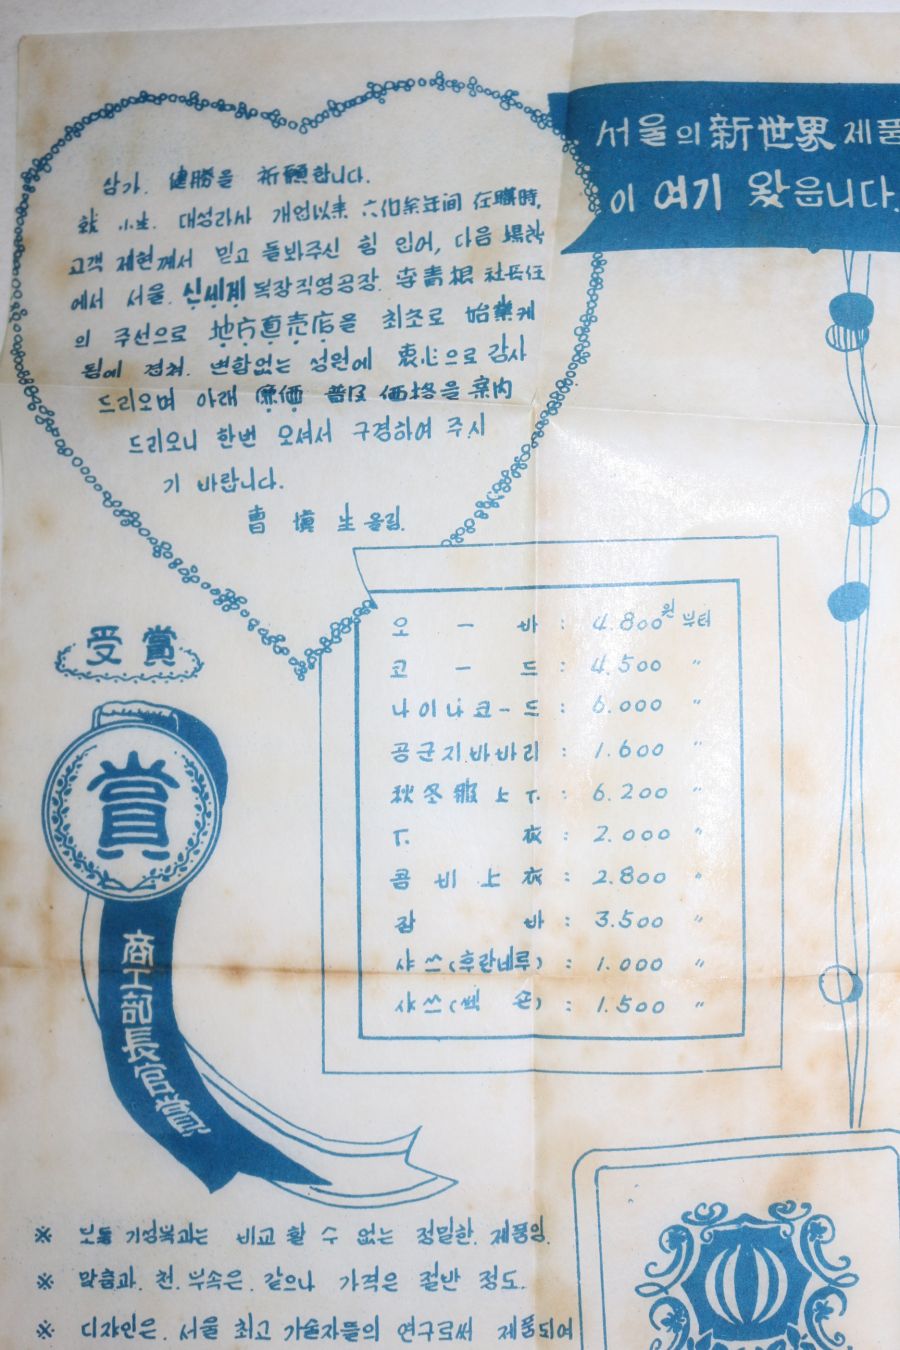 서울의 新世界 제품
이 여기 왔읍니다.
삼가. 健勝을 祈願합니다.
小生. 대성라사 개업以来 六個余年间 在職時,
고객 제현께서 믿고 돌봐주신 힘 입어, 다음
에서 서울. 신세계 복장직영공장. 李青根 社長任
의 주선으로 地方直売店을 최초로 始業케
됨에 변함없는 성원에 衷心으로 감사
드리오며 아래 廉価 普及 価格을 案内
드리오니 한번 오셔서 구경하여 주시
기 바랍니다.
曹 塡 生 올림.
오 ー 바 : 4.800원 부터
코 ー 드 : 4.500 〃
나이나코ー드 : 6.000 〃
공군지바바리 : 1.600 〃
秋冬服上下. : 6.200 〃
下. 衣 : 2.000 〃
콤비上衣 : 2.800 〃
잠 바 : 3.500 〃
샤쓰(후란네루) : 1.000 〃
샤쓰(쎅 손) : 1.500 〃
受賞
賞
商工部長官賞
※ 보통 기성복과는 비교 할 수 없는 정밀한. 제품임.
※ 맞춤과. 천. 부속은. 같으나 가격은 절반 정도.
※ 디자인은. 서울 최고 기술자들의 연구로써 제품되여